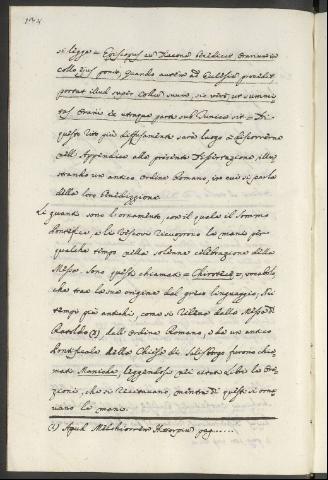 si legge = Episcopus cu Diacono benedicit Orarium in
collo ejus ponit, quando autem ad Ecclesiam procedit
portat illud super Collum suum, sic vero, ut summi
tas Orarii ex utraque parte sub Tunica sit = Di
questo rito più diffusamente sarà luogo a discorrere
nell'Appendice alla presente Dissertazione, illu
strando un antico Ordine Romano, ive ovi si parla
della loro Benedizzione.
Li guanti sono l'ornamento, con il quale il Sommo
Pontefice, e li Vescovi ricuoprono le mani per
qualche tempo nella solenne celebrazione della
Messa. Sono questi chiamati = Chirotecæ =, vocabolo
che trae la sua origine dal greco linguaggio; Nei
tempi più antichi, come si rileva dalla Messa di
Ratoldo (1), dall'Ordine Romano, e da un antico
Pontificale della Chiesa di Salisburgo furono chia
mati Manicha, leggendosi nei citati Libri le Ora
zioni, che si recitavano, mentre di questi si orna
vano le mani.
(1) Apud Melchiorrem Hittorpium pag......